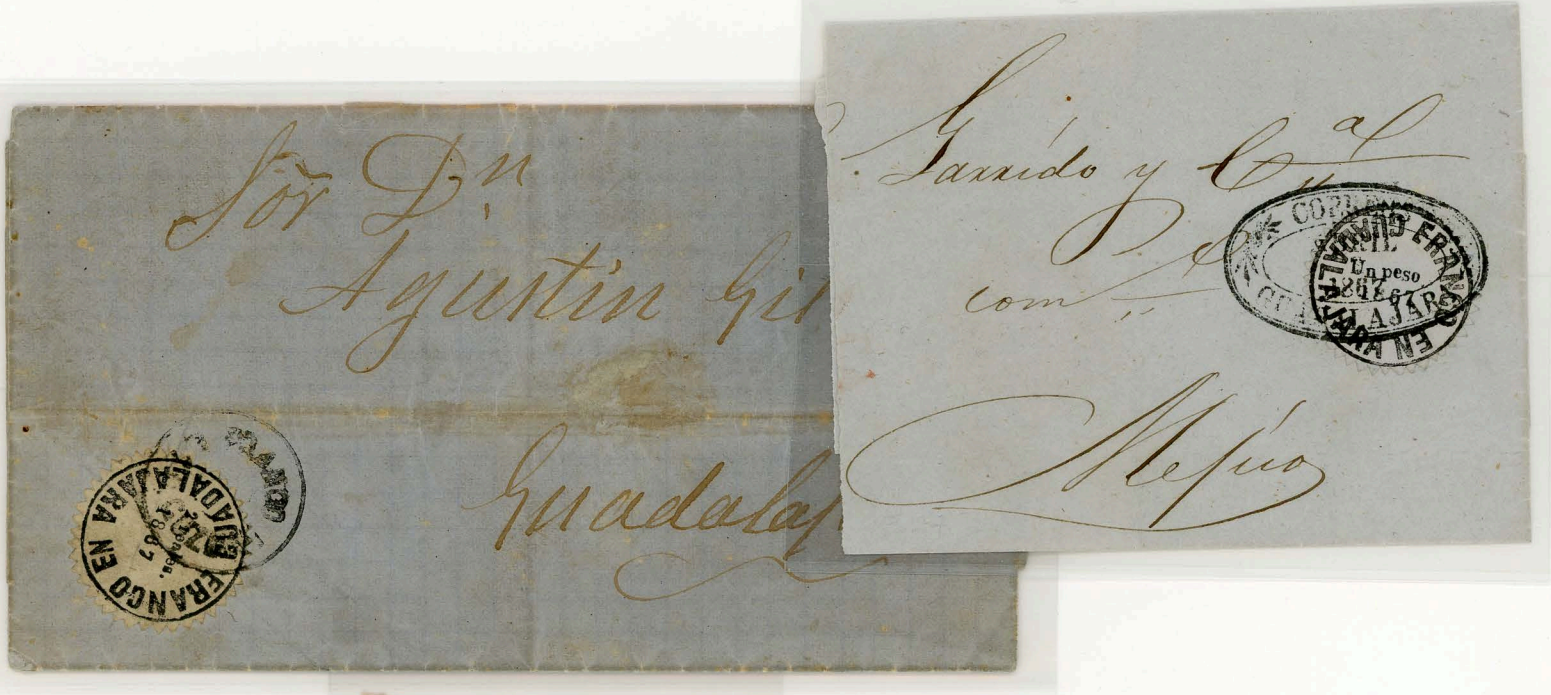 Sōr Dn.
Agustin Gil
Guadalaj
FRANCO EN GUADALAJARA
1867
Garrido y Cia
com
Mejico
CORREOS
1867
GUADALAJARA
FRANCO EN GUADALAJARA
Un peso
1867